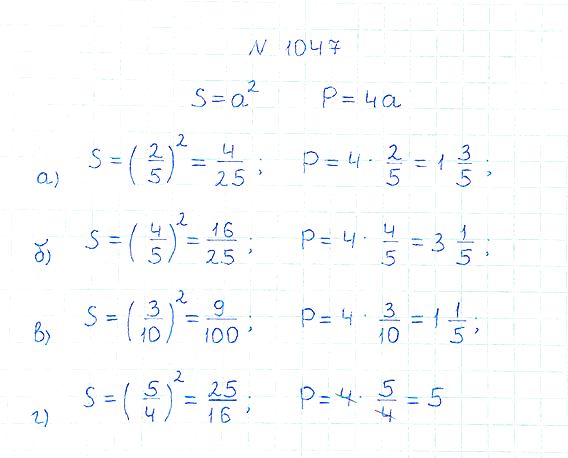 N 1047
S = a² P = 4a
а) S = (2/5)² = 4/25; P = 4 · 2/5 = 1 3/5;
б) S = (4/5)² = 16/25; P = 4 · 4/5 = 3 1/5;
в) S = (3/10)² = 9/100; P = 4 · 3/10 = 1 1/5;
г) S = (5/4)² = 25/16; P = 4 · 5/4 = 5